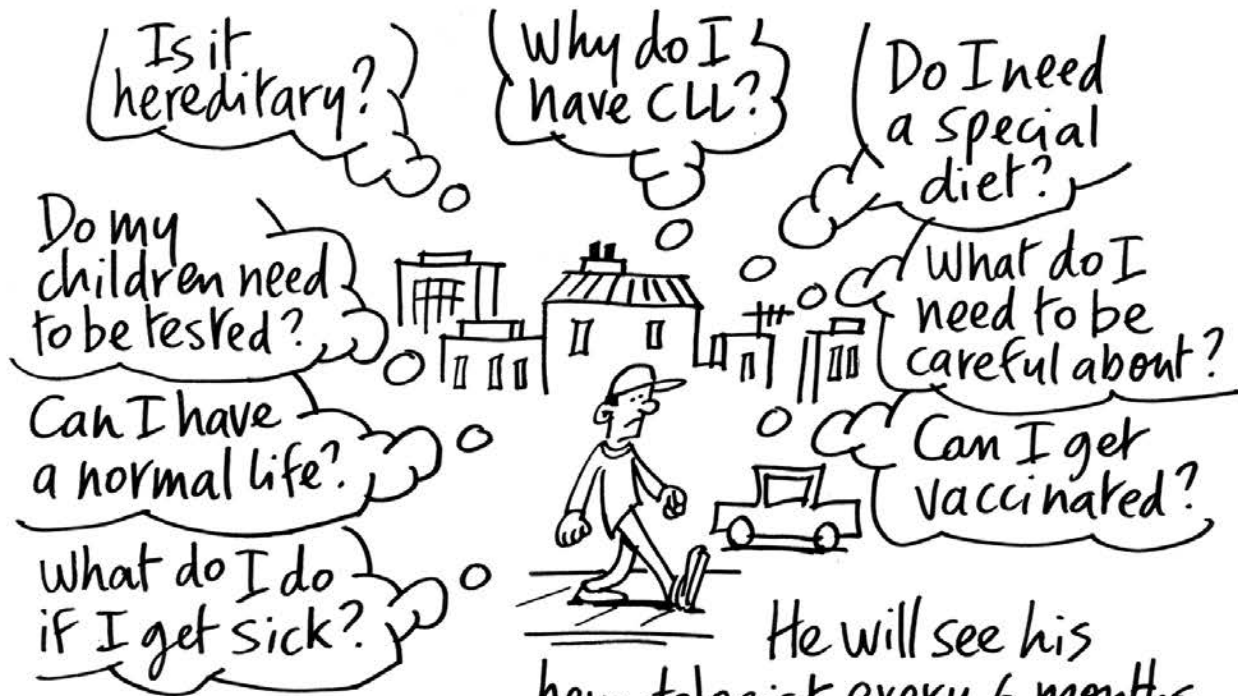 Is it
hereditary?
Why do I
have CLL?
Do I need
a special
diet?
Do my
children need
to be tested?
What do I
need to be
careful about?
Can I have
a normal life?
Can I get
vaccinated?
What do I do
if I get sick?
He will see his
hematologist every 6 months